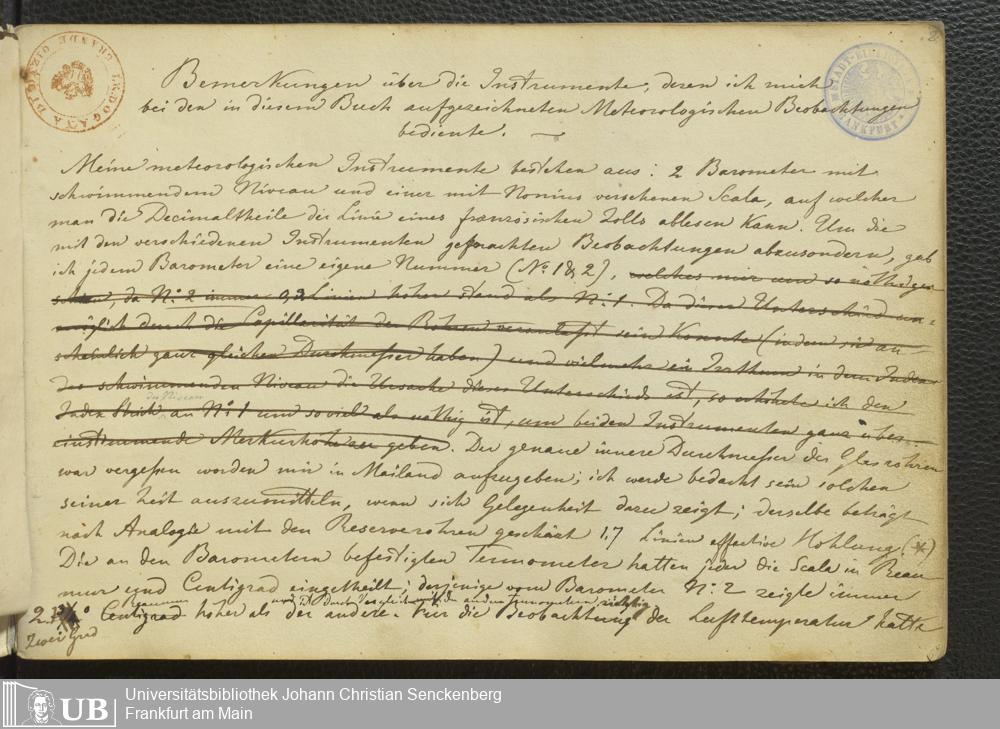 Bemerkungen über die Instrumente, deren ich mich
bei den in diesem Buch aufgezeichneten Meteorologischen Beobachtungen
bediente.
Meine meteorologischen Instrumente bestehen aus: 2 Barometer mit
schwimmendem Niveau und einer mit Nonius versehenen Scala, auf welcher
man die Decimaltheile der Linie eines französischen Zolls ablesen kann. Um die
mit den verschiedenen Instrumenten gemachten Beobachtungen abzusondern, gab
ich jedem Barometer eine eigene Nummer (No. 1 & 2), welches mir um so nöthiger
schien, da No. 2 immer 0,3 Linien höher stand als No. 1. Da dieser Unterschied un-
möglich durch die Capillarität der Röhren veranlasst sein konnte (indem sie an-
scheinlich ganz gleichen Durchmesser haben) und vielmehr ein Irrthum in dem Index
des schwimmenden Niveau die Ursache dieses Unterschieds ist, so erhöhte ich den
des Niveau
Index Strich an No. 1 um so viel als nöthig ist, um beiden Instrumenten ganz über-
einstimmende Merkurhöhe zu geben. Der genaue innere Durchmesser der Glasröhren
war vergessen worden mir in Mailand aufzugeben; ich werde bedacht sein solchen
seiner Zeit auszumitteln, wenn sich Gelegenheit dazu zeigt; derselbe beträgt
nach Analogie mit den Reserveröhren geschäzt 1.7 Linien effective Höhlung. (*)
Die an den Barometern befestigten Termometer hatten jeder die Scala in Reau
mur und Centigrad eingetheilt; derjenige vom Barometer No. 2 zeigte immer
Centigrad höher als der andere. Für die Beobachtung der Lufttemperatur hatte
Zwei Grad
DOGANA DI GRAZIE
STADT-BIBLIOTHEK
FRANKFURT
UB
Universitätsbibliothek Johann Christian Senckenberg
Frankfurt am Main